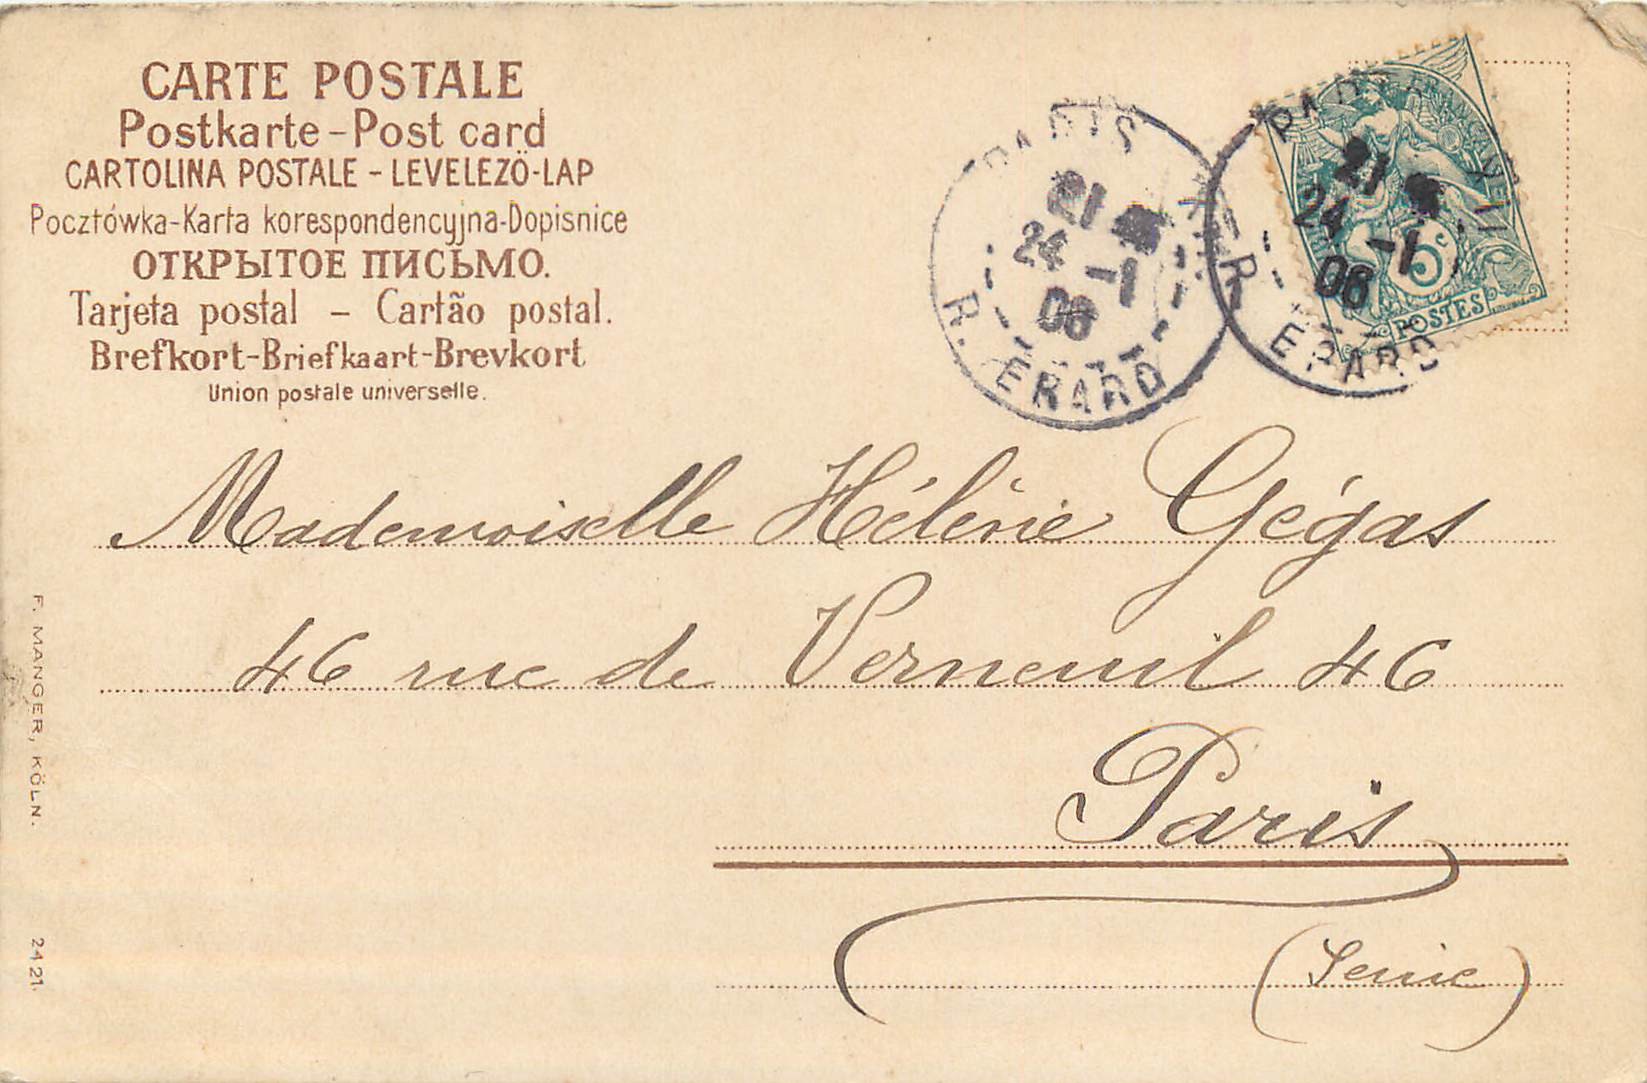 CARTE POSTALE
Postkarte - Post card
CARTOLINA POSTALE - LEVELEZÖ-LAP
Pocztówka-Karta korespondencyjna-Dopisnice
ОТКРЫТОЕ ПИСЬМО.
Tarjeta postal - Cartão postal.
Brefkort-Briefkaart-Brevkort
Union postale universelle.
PARIS
21
24 -1
06
R. ERARD
PARIS
21
24 -1
06
R. ERARD
5c
POSTES
Mademoiselle Hélène Gégas
46 rue de Verneuil 46
Paris
(Seine)
F. MANGER, KÖLN.
2421